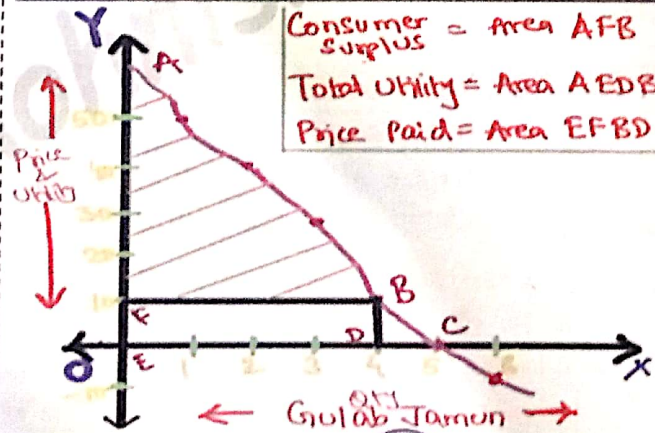 Consumer Surplus = Area AFB
Total Utility = Area AEDB
Price Paid = Area EFBD
Y
A
50
Price & Utility
40
30
20
10
F
B
C
D
E
O
1
2
3
4
5
6
X
-10
Qty
Gulab Jamun